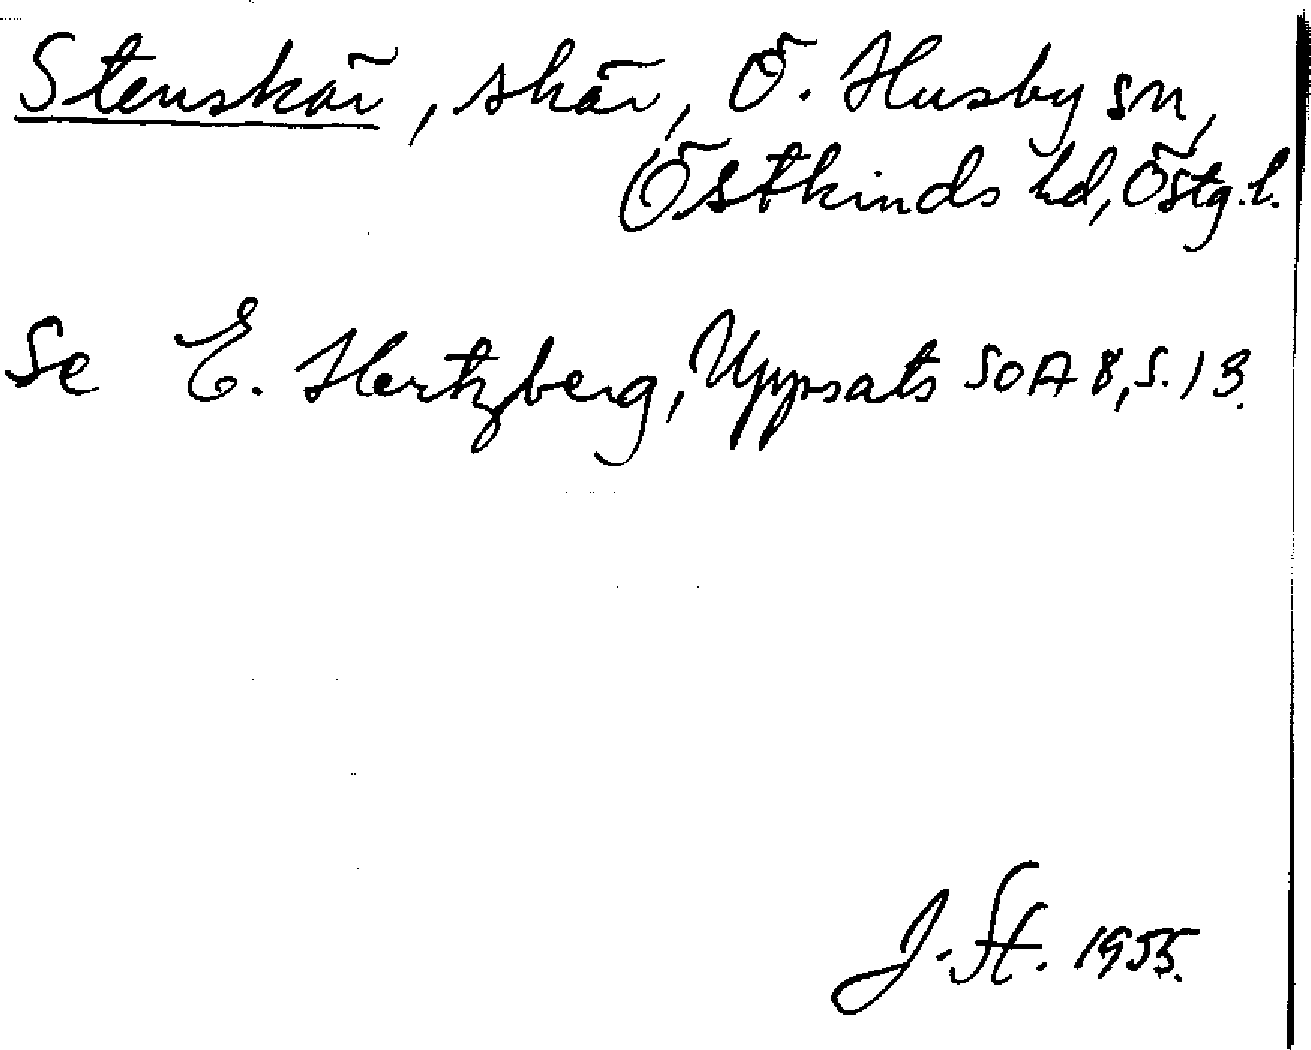 Stenskär, skär, Ö. Husby sn,
Östkinds hd, Östg. l.
Se E. Hertzberg, Uppsats SOA 8, s. 13.
J. St. 1955.